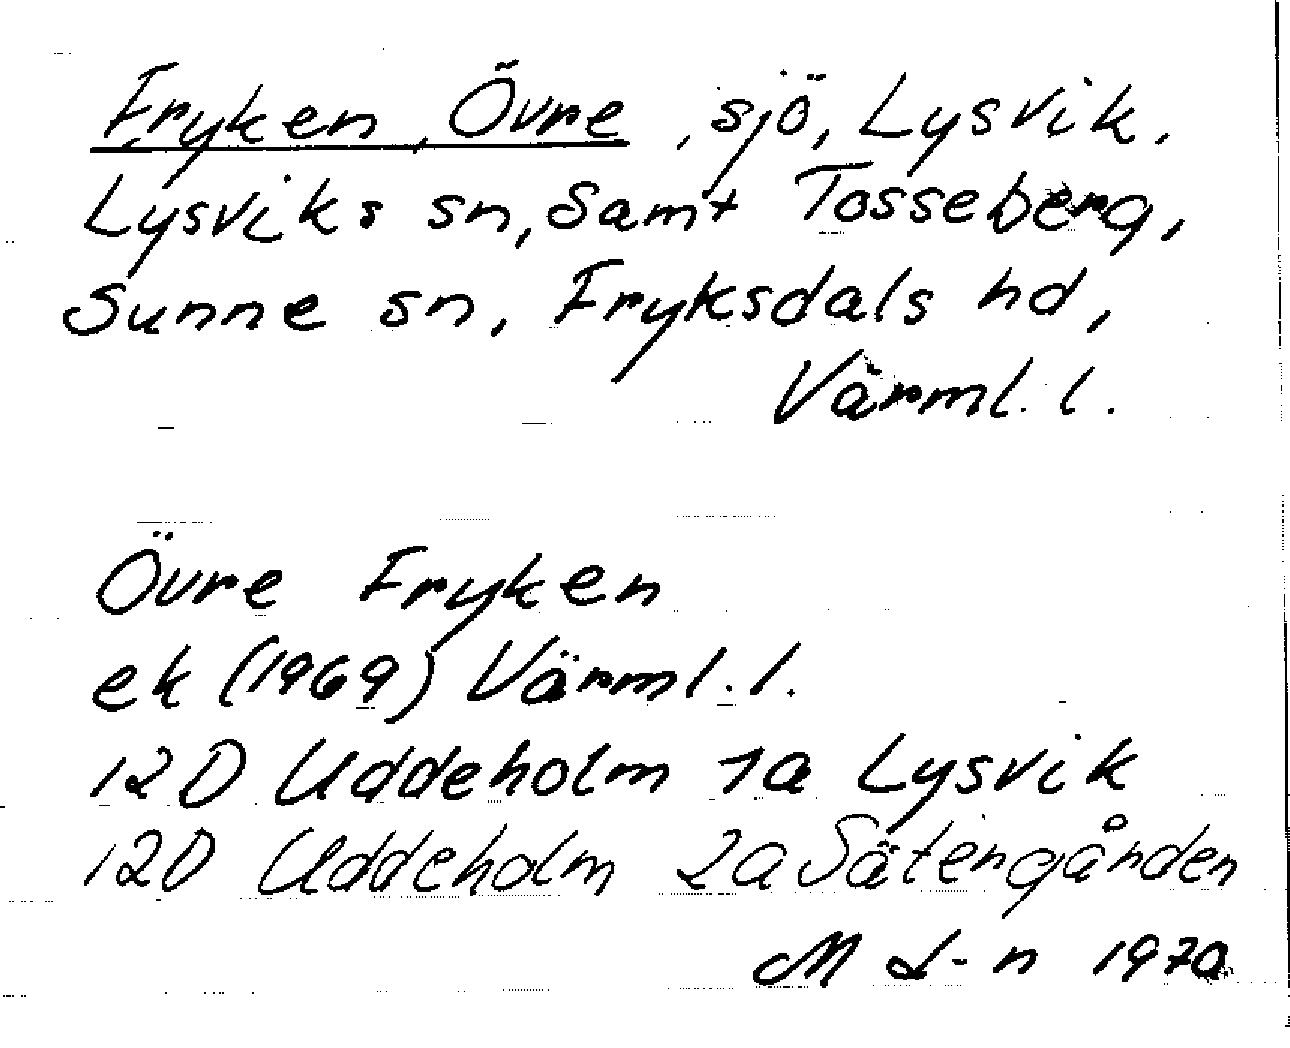 Fryken, Övre, sjö, Lysvik,
Lysviks sn, samt Tosseberg,
Sunne sn, Fryksdals hd,
Värml. l.
Övre Fryken
ek (1969) Värml. l.
12D Uddeholm 1a Lysvik
12D Uddeholm 2a Sätergården
M L-n 1970